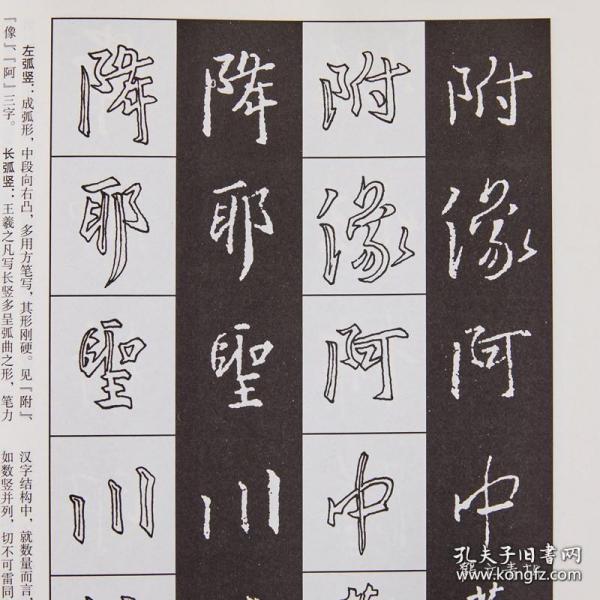 附
像
阿
中
附
像
阿
中
降
耶
聖
川
降
耶
聖
川
左弧竖：成弧形，中段向右凸，多用方笔写，其形刚硬。见『附』、
『像』、『阿』三字。 长弧竖：王羲之凡写长竖多呈弧曲之形，笔力
汉字结构中，就数量而言，
如数竖并列，切不可雷同
孔夫子旧书网
www.kongfz.com